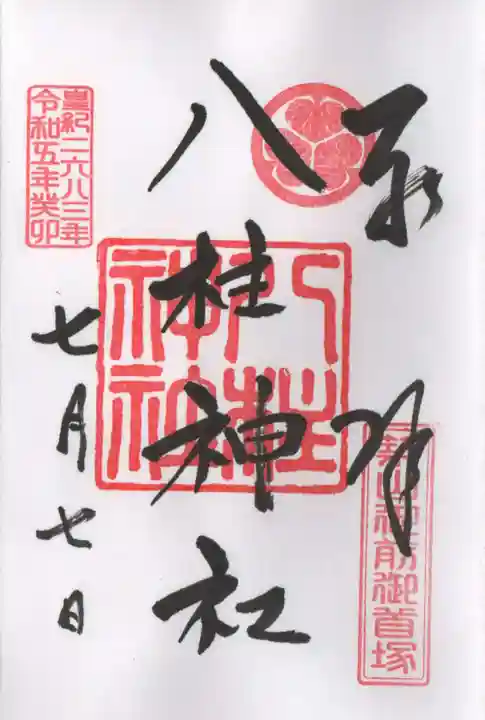 奉拝
八柱神社
八柱
神社
皇紀二六八三年
令和五年癸卯
七月七日
築山神前御首塚